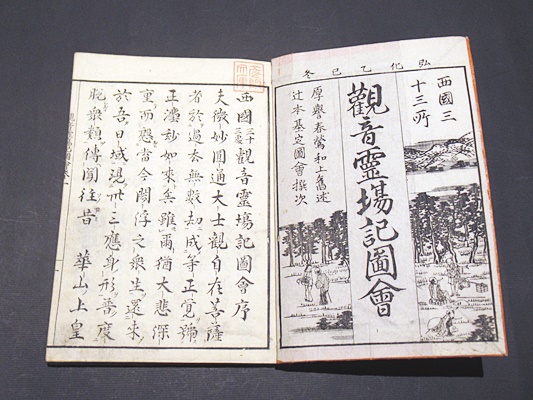 弘化乙巳冬
西國三
十三所
觀音靈場記圖會
厚譽春鶯和上舊述
辻本基定圖會撰次
西國三十三處觀音靈場記圖會序
夫微妙圓通大士觀自在菩薩
者於過去無數劫成等正覺號
正灋明如來矣雖爾猶大悲深
重而愍當今閻浮之衆生還來
於吾日域現卅三應身形善度
脱衆類傳聞往昔 華山上皇